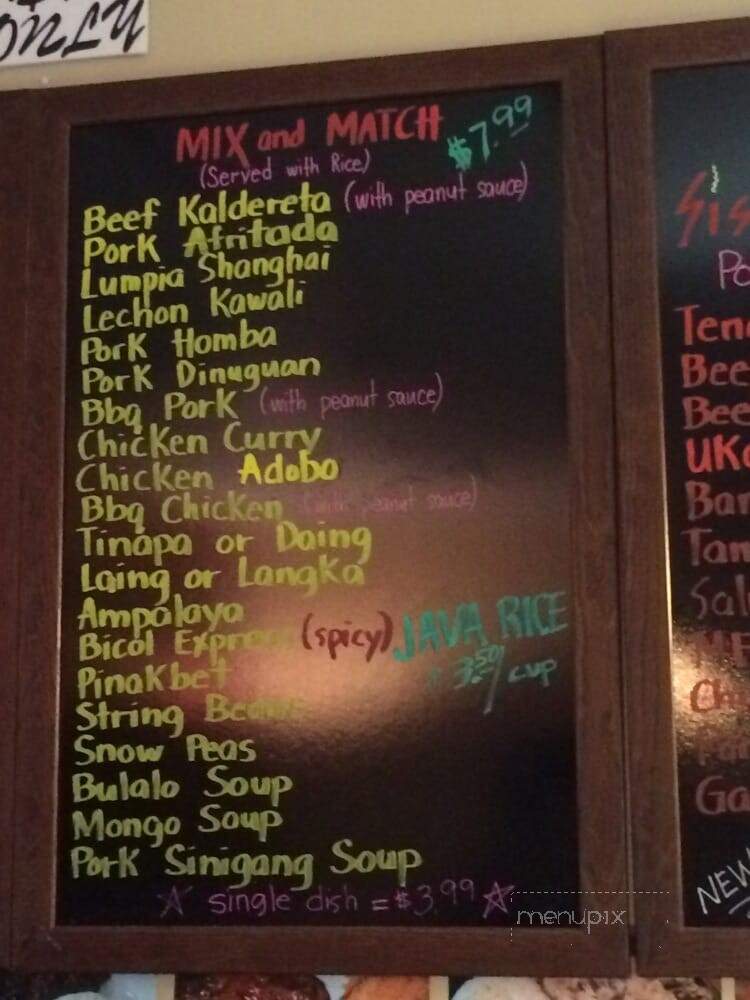 ONLY
MIX and MATCH $7.99
(Served with Rice)
Beef Kaldereta (with peanut sauce)
Pork Afritada
Lumpia Shanghai
Lechon Kawali
Pork Homba
Pork Dinuguan
Bbq Pork (with peanut sauce)
Chicken Curry
Chicken Adobo
Bbq Chicken (with peanut sauce)
Tinapa or Daing
Laing or Langka
Ampalaya
Bicol Express (spicy) JAVA RICE
Pinakbet 3.50/cup
String Beans
Snow Peas
Bulalo Soup
Mongo Soup
Pork Sinigang Soup
☆ single dish = $3.99 ☆
menupix
Bee
Bee
NEW